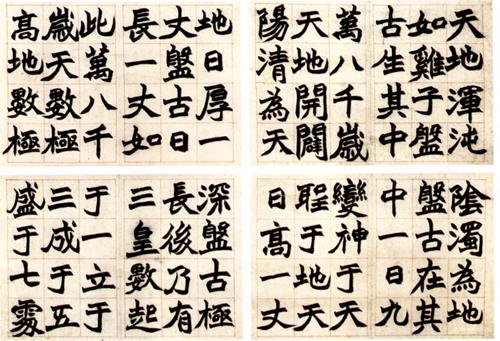 天地渾沌
如雞子盤
古生其中
萬八千歲
天地開闢
陽清為天
陰濁為地
盤古在其
中一日九
變神于天
聖于地天
日高一丈
地日厚一
丈盤古日
長一丈如
此萬八千
歲天數極
高地數極
深盤古極
長後乃有
三皇數起
于一立于
三成于五
盛于七處